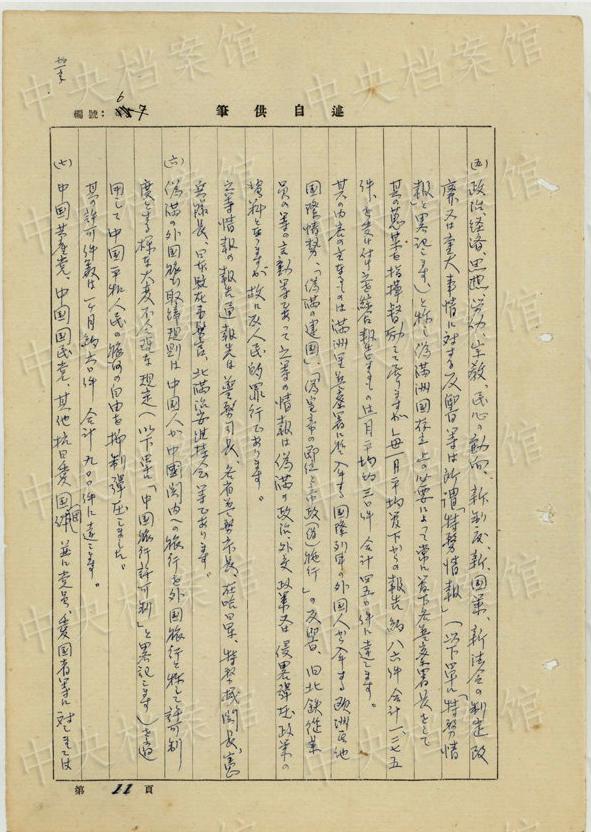 中央档案馆
編號: 6 7
筆供自述
(五) 政治、経済、思想、労仂、宗教、民心の動向、新制度、新国策、新法令の制定改
廃又は重大事情に対する反響等は所謂「特務情報」(以下単に「特務情
報」と畧記します)と称し偽満洲国存立上の必要によつて常に管下各警察署長をして
其の蒐集を指揮督励して居りますが毎一月平均管下からの報告約八六件 合計一二七五
件、之を受け付け之を総合報告するものは一月平均約三〇件 合計四五〇件に達します。
其の内容の主なるものは満洲里警察署に於て入手する国際列車の外国人から入手する欧洲各地
国際情勢、「偽満の建国」、「偽皇帝の即位と帝政(偽)施行」の反響、旧北鉄従業
員の等の言動等であつて之等の情報は偽満の政治外交政策又は侵畧弾圧政策の
資料となつた 故に反人民的罪行であります。
之等情報の報告通報先は警務司長、各省警務庁長、在哈日本特務機関長、憲
兵隊長、日本駐在 北満治安維持会等であります。
(六) 偽満の外国旅行取締規則は中国人が中国関内への旅行を外国旅行と称して許可制
度とする様な 規定(以下単に「中国旅行許可制」と畧記します)を適
用して中国平和人民の旅行の自由を抑制弾圧しました。
其の許可件数は一ヶ月約六〇件 合計九〇〇件に達します。
(七) 中国共産党、中国国民党、其他抗日愛国団体並に党員、愛国者等に対しましては
第 11 頁